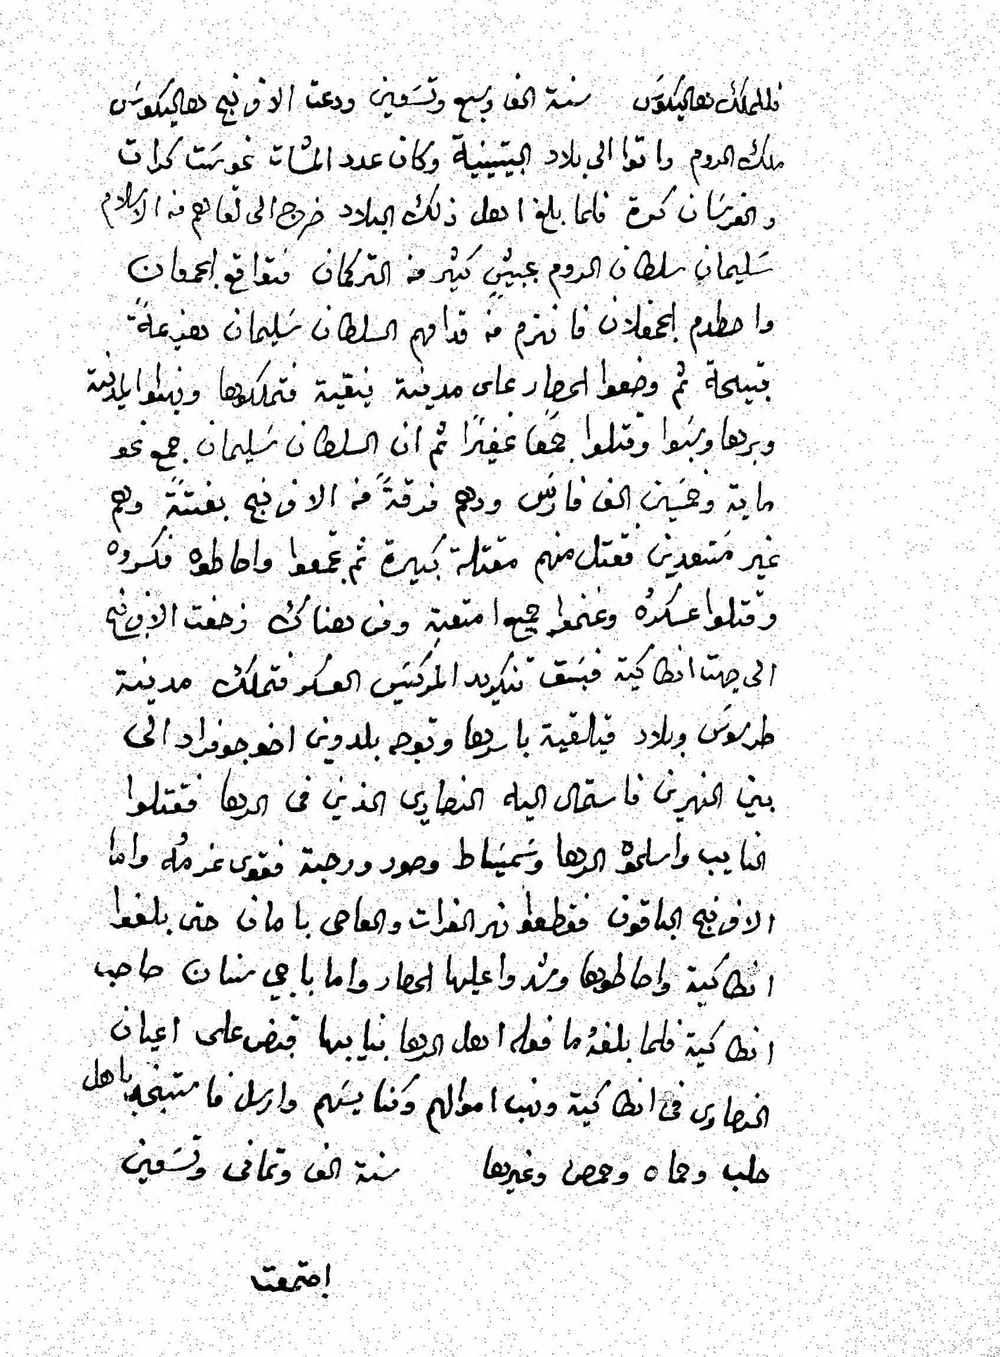 فللملك دهاليكوس سنة الف وسبع وتسعين ودعت الافرنج دهاليكوس
ملك الروم واتوا الى بلاد البيتينية وكان عدد المشات نحو ست كرات
والفرسان كرة فلما بلغ اهل ذلك البلاد خرج الى لقاهم من الاسلام
سليمان سلطان الروم بجيشٍ كثير من التركمان فتواقع الجمعان
واصطدم الجحفلان فانهزم من قدامهم السلطان سليمان هزيمةً
قبيحة ثم وضعوا الحصار على مدينة نيقية فتملكوها ونهبوا المدينة
وبرها وسَبَوا وقتلوا جمعًا غفيرًا ثم ان السلطان سليمان جمع نحو
ماية وخمسين الف فارس ودهم فرقةً من الافرنج بغتتةً وهم
غير مستعدين فقتل منهم مقتلة كبيرة ثم تجمعوا واحاطوه فكسروه
وقتلوا عسكرهُ وغنموا جميع امتعتهِ ومن هناك زحفت الافرنج
الى جهت انطاكية فسبق تنكريد المركيس العسكر فتملك مدينة
طرسوس وبلاد قيلقية باسرها وتوجه بلدوين اخو جوفراد الى
بين النهرين فاستمال اليه النصارى الذين في الرها فقتلوا
النايب واسلموهُ الرها وسميساط وصور ورجبة فقوى عزمهُ واما
الافرنج الباقون فقطعوا نهر الفرات والعاصى بامان حتى بلغوا
انطاكية واحاطوها وشدوا عليها الحصار واما باجي سنان صاحب
انطاكية فلما بلغهُ ما فعله اهل الرها بنايبها قبض على اعيان
النصارى في انطاكية ونهب اموالهم وكنايسهم وارسل فاستنجد باهل
حلب وحماه وحمص وغيرها سنة الف وثمانى وتسعين
اجتمعت